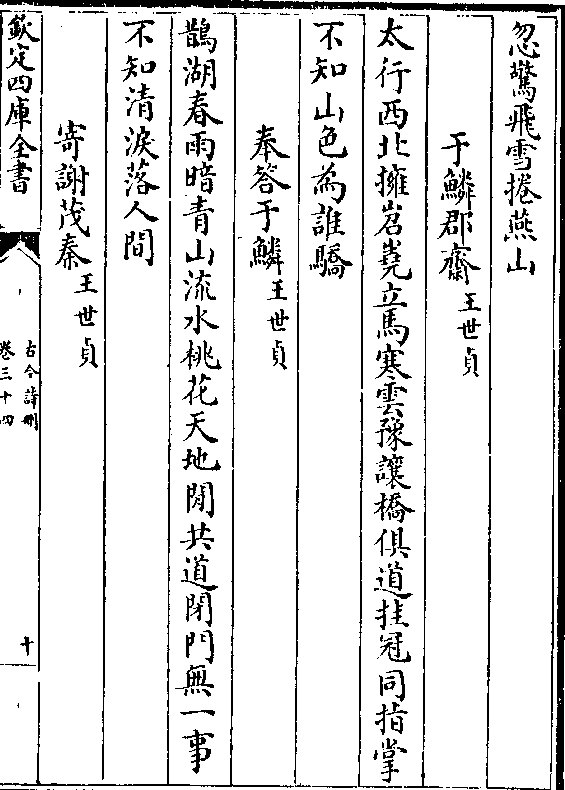 忽驚飛雪捲燕山
于鱗郡齋 王世貞
太行西北擁岧嶤立馬寒雲豫讓橋俱道挂冠同指掌
不知山色為誰驕
奉答于鱗 王世貞
鵲湖春雨暗青山流水桃花天地閒共道閉門無一事
不知清淚落人間
寄謝茂秦 王世貞
欽定四庫全書
古今詩刪
卷三十四
十